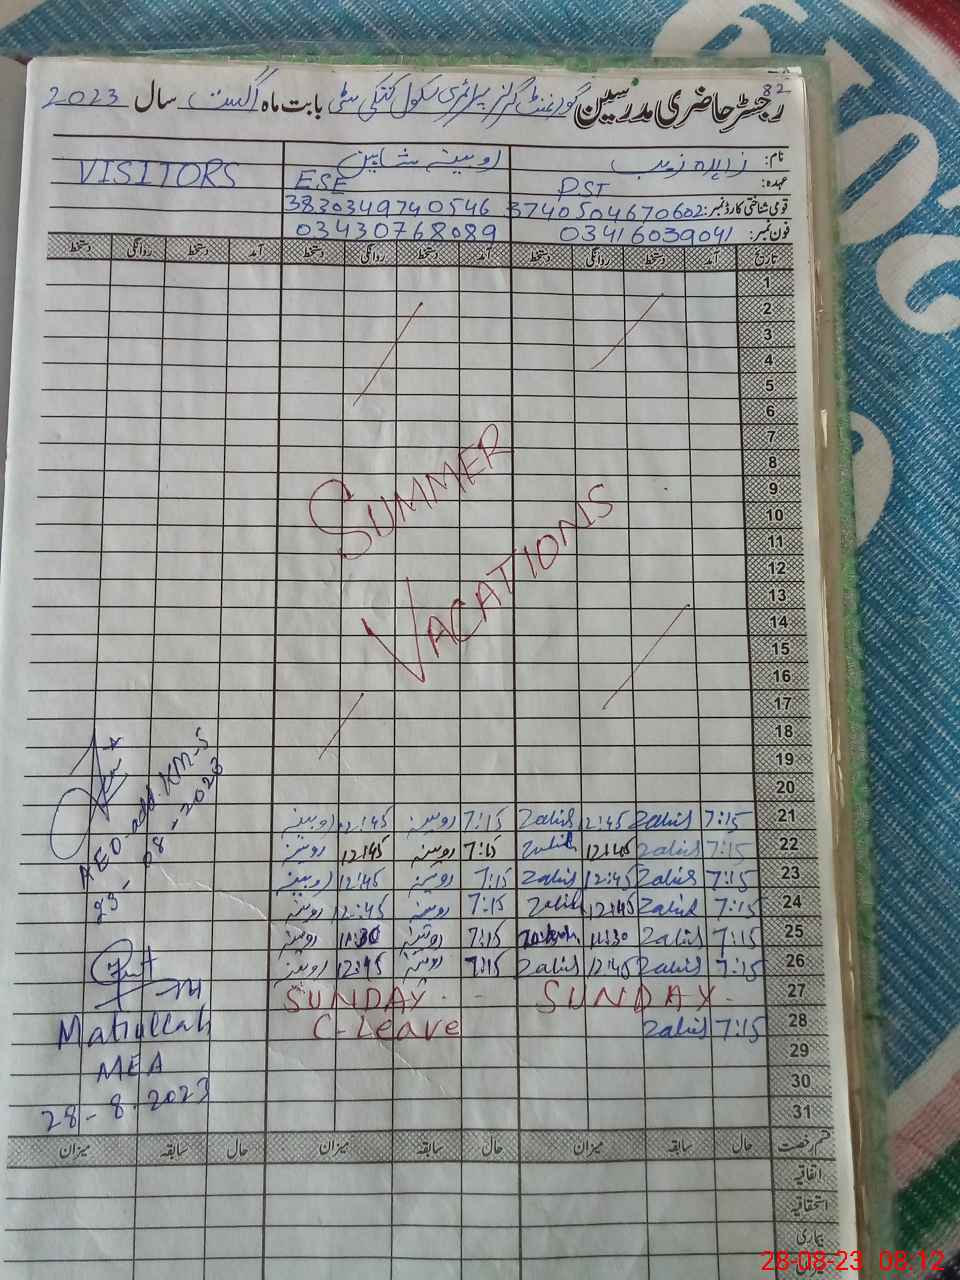 82
رجسٹر حاضری مدرسین گورنمنٹ گرلز پرائمری سکول کتکی سٹی بابت ماہ اگست سال 2023
نام: زاہدہ زیب روبینہ شاہین VISITORS
عہدہ: PST ESE
قومی شناختی کارڈ نمبر: 3740504670602 3830349740546
فون نمبر: 03416039041 03430768089
تاریخ آمد دستخط روانگی دستخط آمد دستخط روانگی دستخط آمد دستخط روانگی دستخط
1
2
3
4
5
6
7
8
9
10
11
12
13
14
15
16
17
18
19
20
SUMMER
VACATIONS
21 7:15 Zahid 12:45 Zahid 7:15 روبینہ 12:45 روبینہ
22 7:15 Zahid 12:45 Zahid 7:15 روبینہ 12:45 روبینہ
23 7:15 Zahid 12:45 Zahid 7:15 روبینہ 12:45 روبینہ
24 7:15 Zahid 12:45 Zahid 7:15 روبینہ 12:45 روبینہ
25 7:15 Zahid 11:30 7:15 روبینہ 11:30 روبینہ
26 7:15 Zahid 12:45 Zahid 7:15 روبینہ 12:45 روبینہ
27 SUNDAY SUNDAY
28 7:15 Zahid C-Leave
29
30
31
AEO KM-5
23-08-2023
Matiullah
MEA
28-8-2023
قسم رخصت حال سابقہ میزان حال سابقہ میزان حال سابقہ میزان
اتفاقیہ
استحقاقیہ
بیماری
میزان
28-08-23 08:12